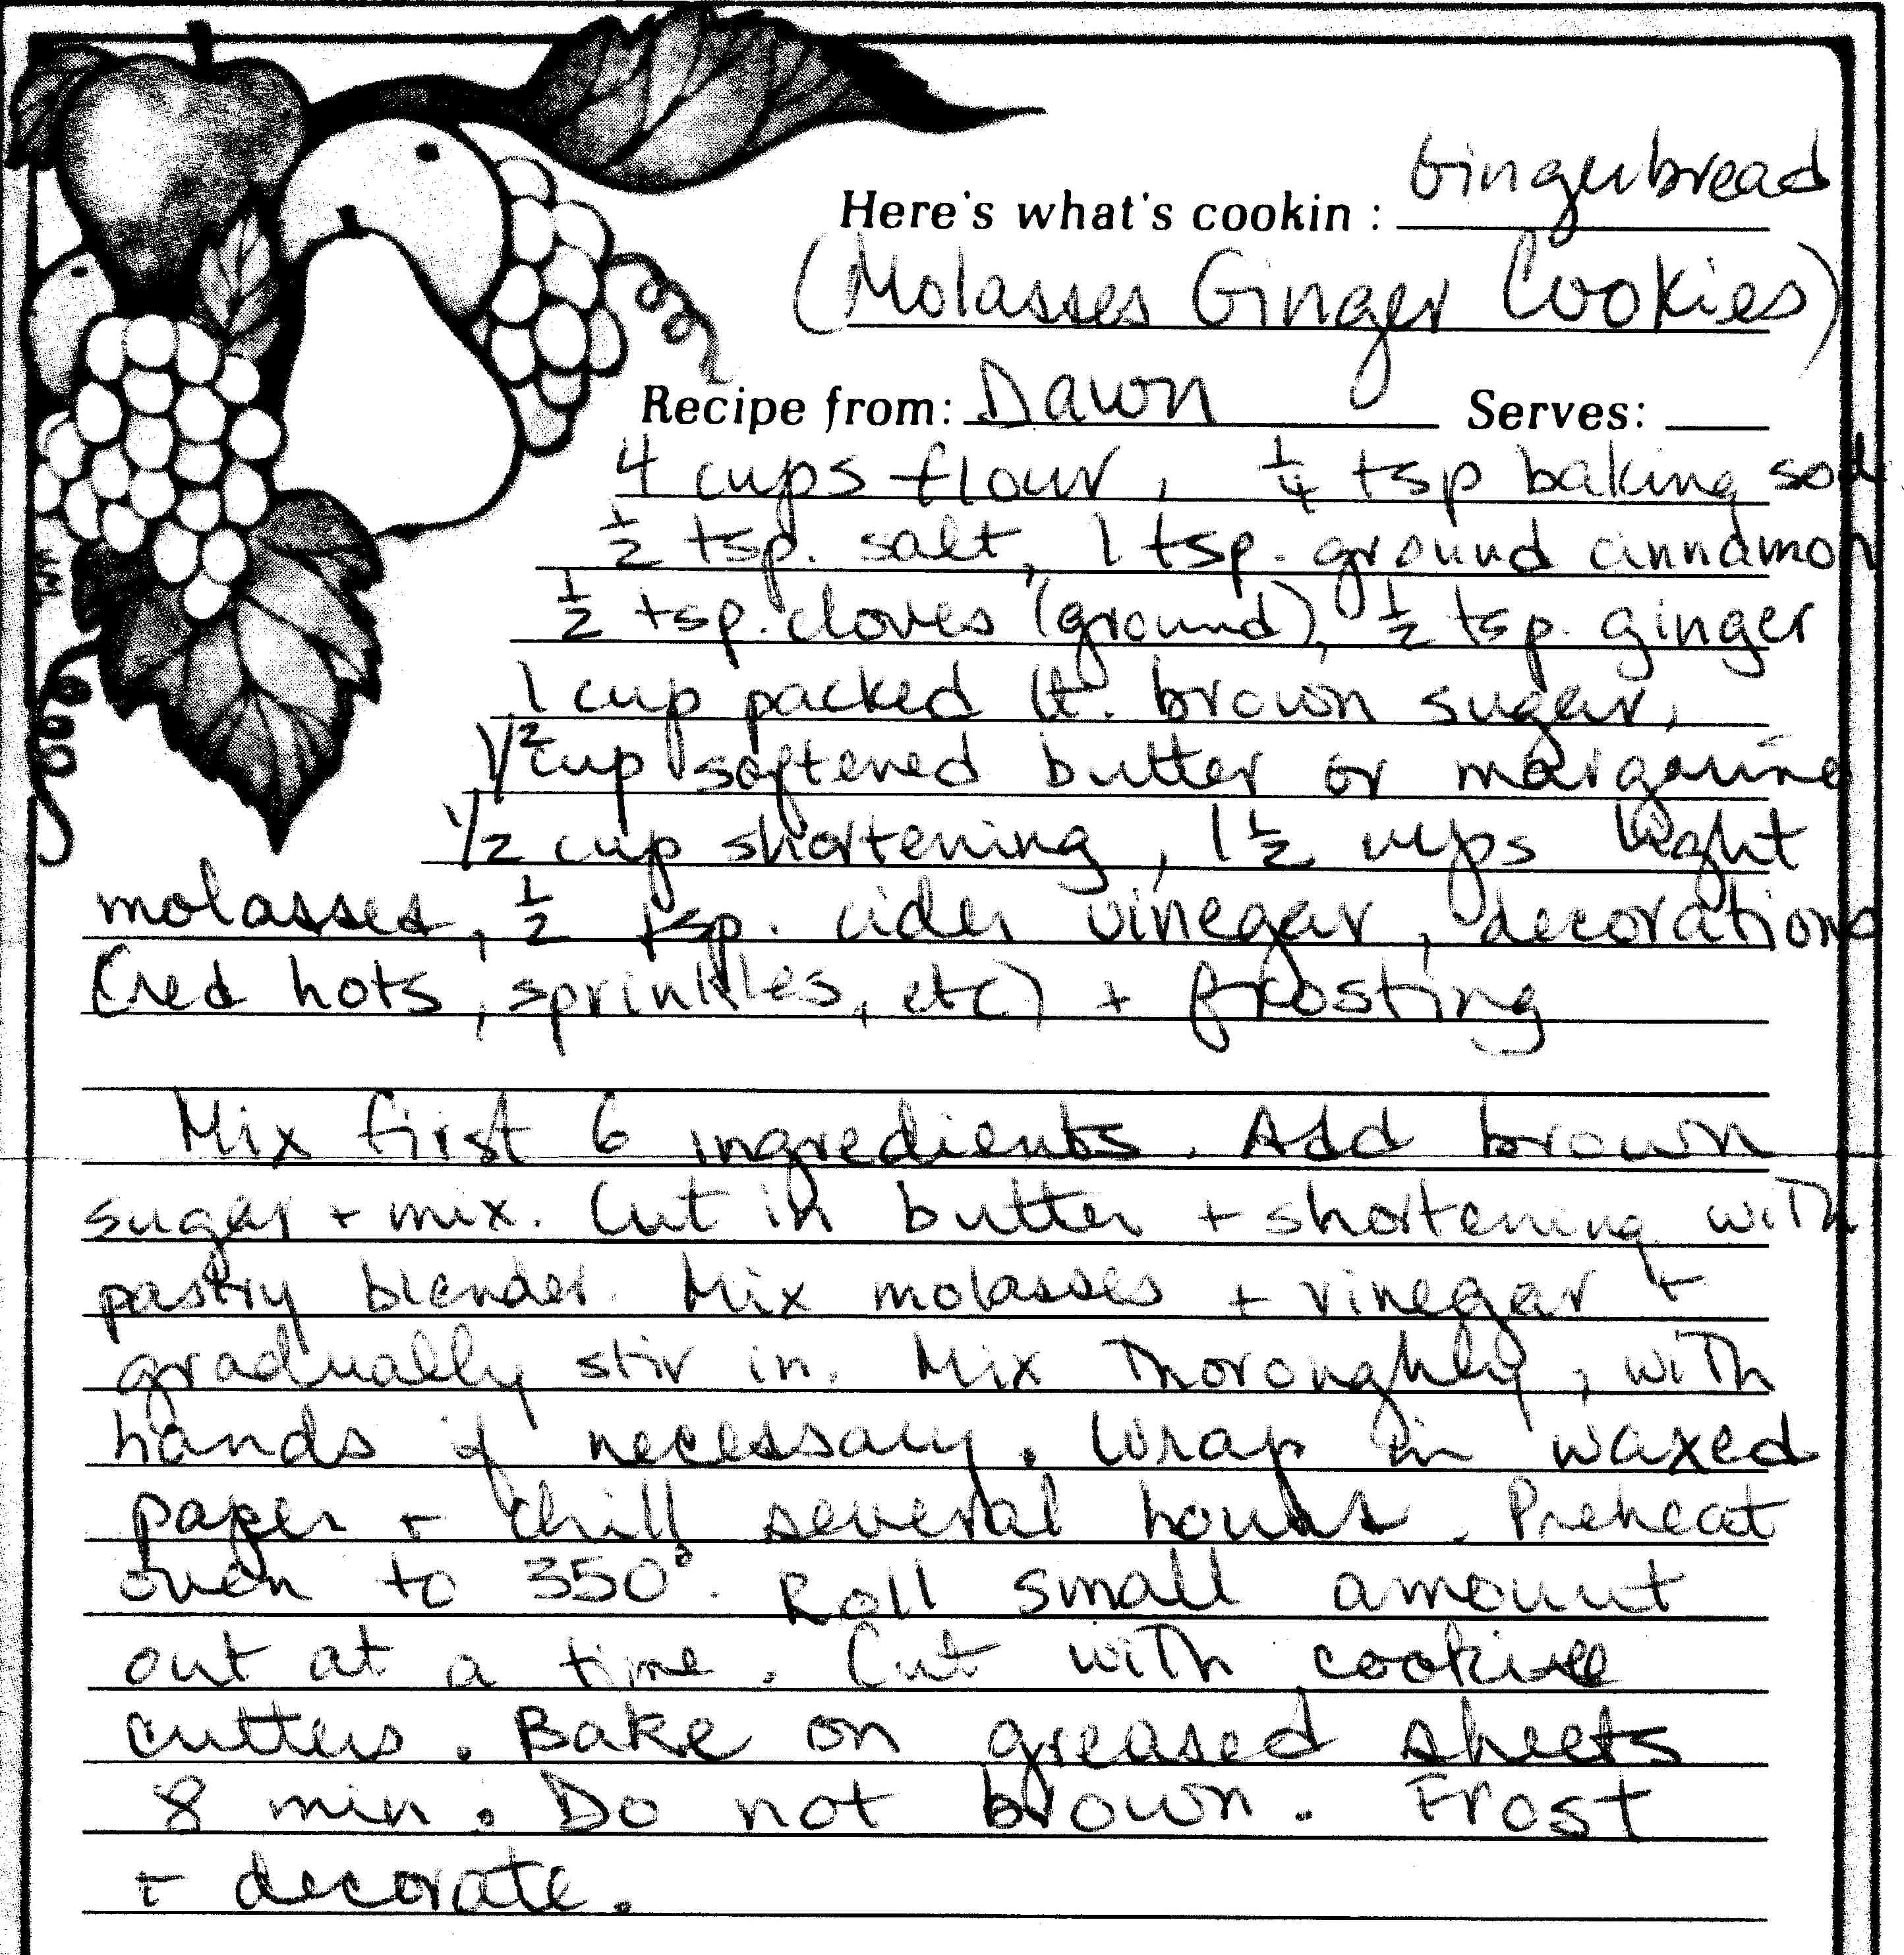 Here's what's cookin : Gingerbread
(Molasses Ginger Cookies)
Recipe from: Dawn Serves:
4 cups flour, 1/4 tsp baking sod
1/2 tsp. salt, 1 tsp. ground cinnamon
1/2 tsp. cloves (ground), 1/2 tsp. ginger
1 cup packed lt. brown sugar,
1/2 cup softened butter or margarine
1/2 cup shortening, 1 1/2 cups light
molasses, 1/2 tsp. cider vinegar, decorations
(red hots, sprinkles, etc) + frosting
Mix first 6 ingredients. Add brown
sugar + mix. Cut in butter + shortening with
pastry blender. Mix molasses + vinegar +
gradually stir in. Mix thoroughly, with
hands if necessary. Wrap in waxed
paper + chill several hours. Preheat
oven to 350°. Roll small amount
out at a time. Cut with cookie
cutters. Bake on greased sheets
8 min. Do not brown. Frost
+ decorate.